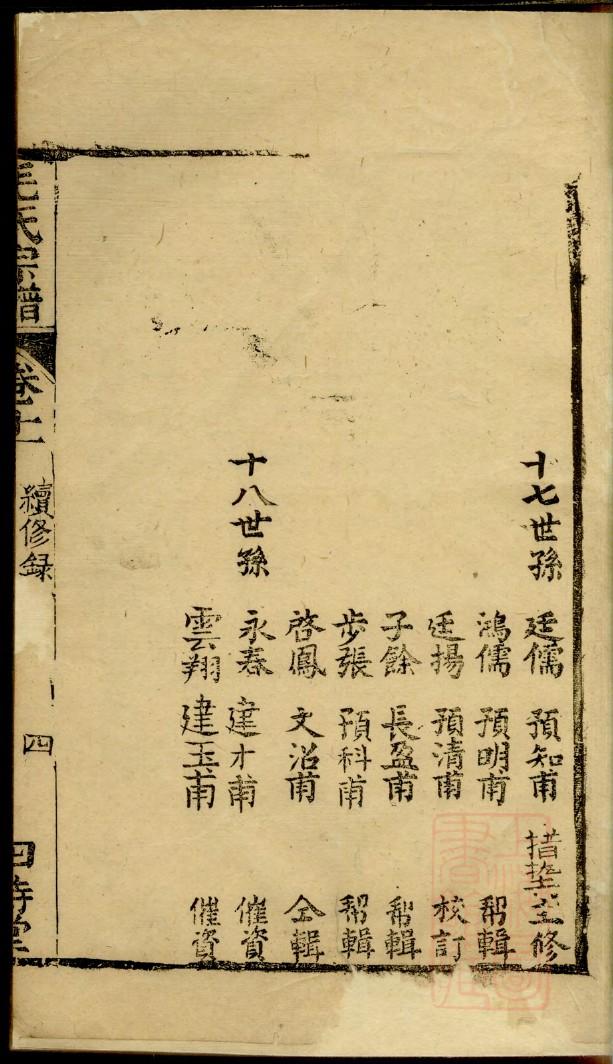 十七世孫 廷儒 預知甫 措墊主修
鴻儒 預明甫 幇輯
廷揚 預清甫 校訂
子餘 長盈甫 幇輯
步張 預科甫 幇輯
啓鳳 文沼甫 仝輯
十八世孫 永春 建才甫 催資
雲翔 建玉甫 催資
毛氏宗譜 卷十 續修録 四